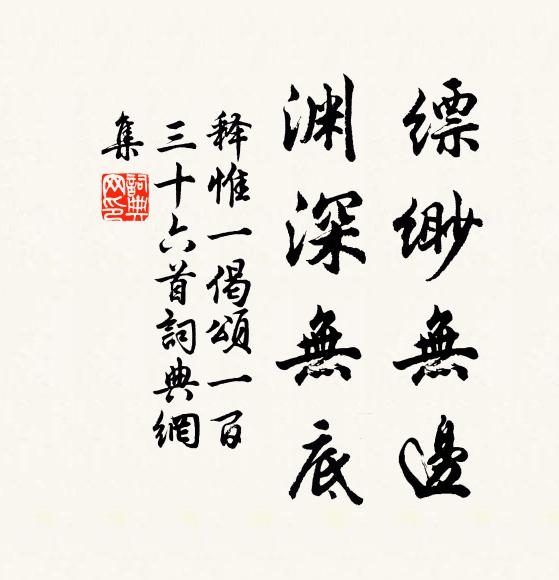 缥缈無邊
渊深無底
释惟一偈頌一百
三十六首詞典網
集
詞典
网印